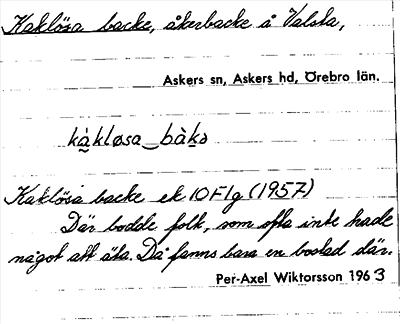 Kaklösa backe, åkerbacke å Valsta,
Askers sn, Askers hd, Örebro län.
kàkløsa bàkə
Kaklösa backe ek 10F1g (1957)
Där bodde folk, som ofta inte hade
något att äta. Då fanns bara en bostad där.
Per-Axel Wiktorsson 1963